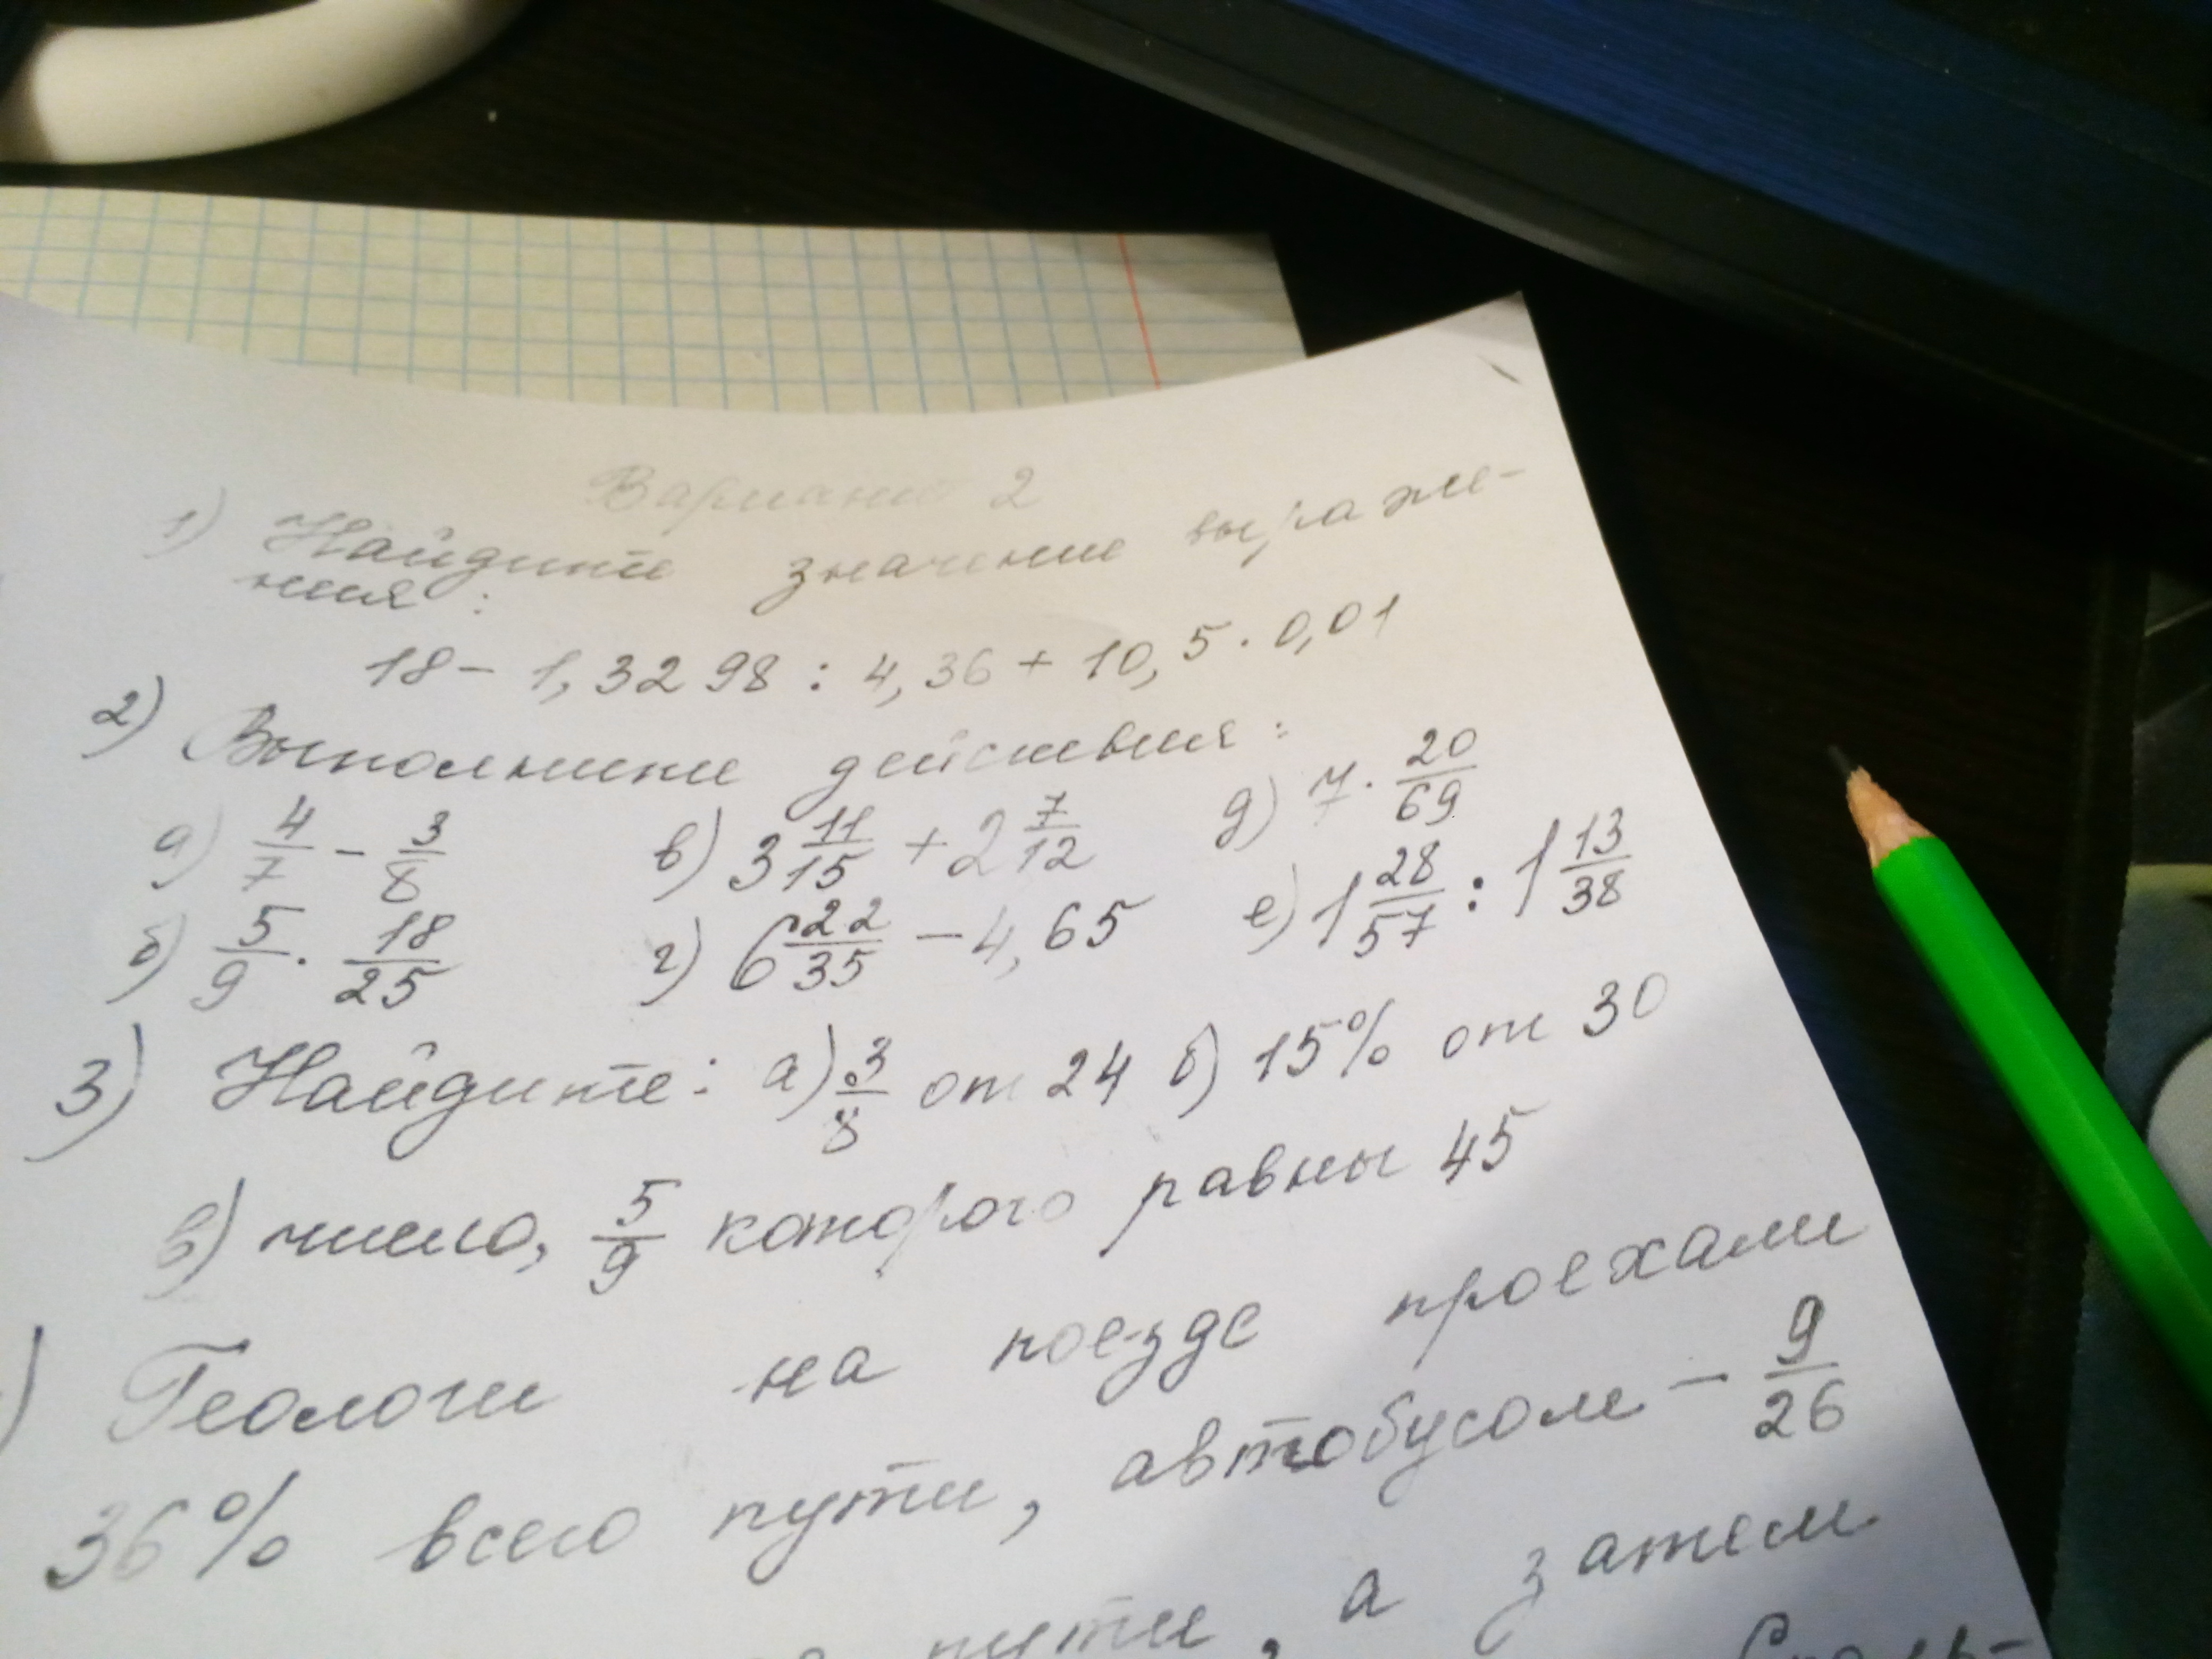 Вариант 2
1) Найдите значение выраже-
ния:
18 - 1,3298 : 4,36 + 10,5 · 0,01
2) Выполните действия:
а) 4/7 - 3/8 в) 3 11/15 + 2 7/12 д) 7 · 20/69
б) 5/9 · 18/25 г) 6 22/35 - 4,65 е) 1 28/57 : 1 13/38
3) Найдите: а) 3/8 от 24 б) 15% от 30
в) число, 5/9 которого равны 45
) Геологи на поезде проехали
36% всего пути, автобусом - 9/26
пути, а затем